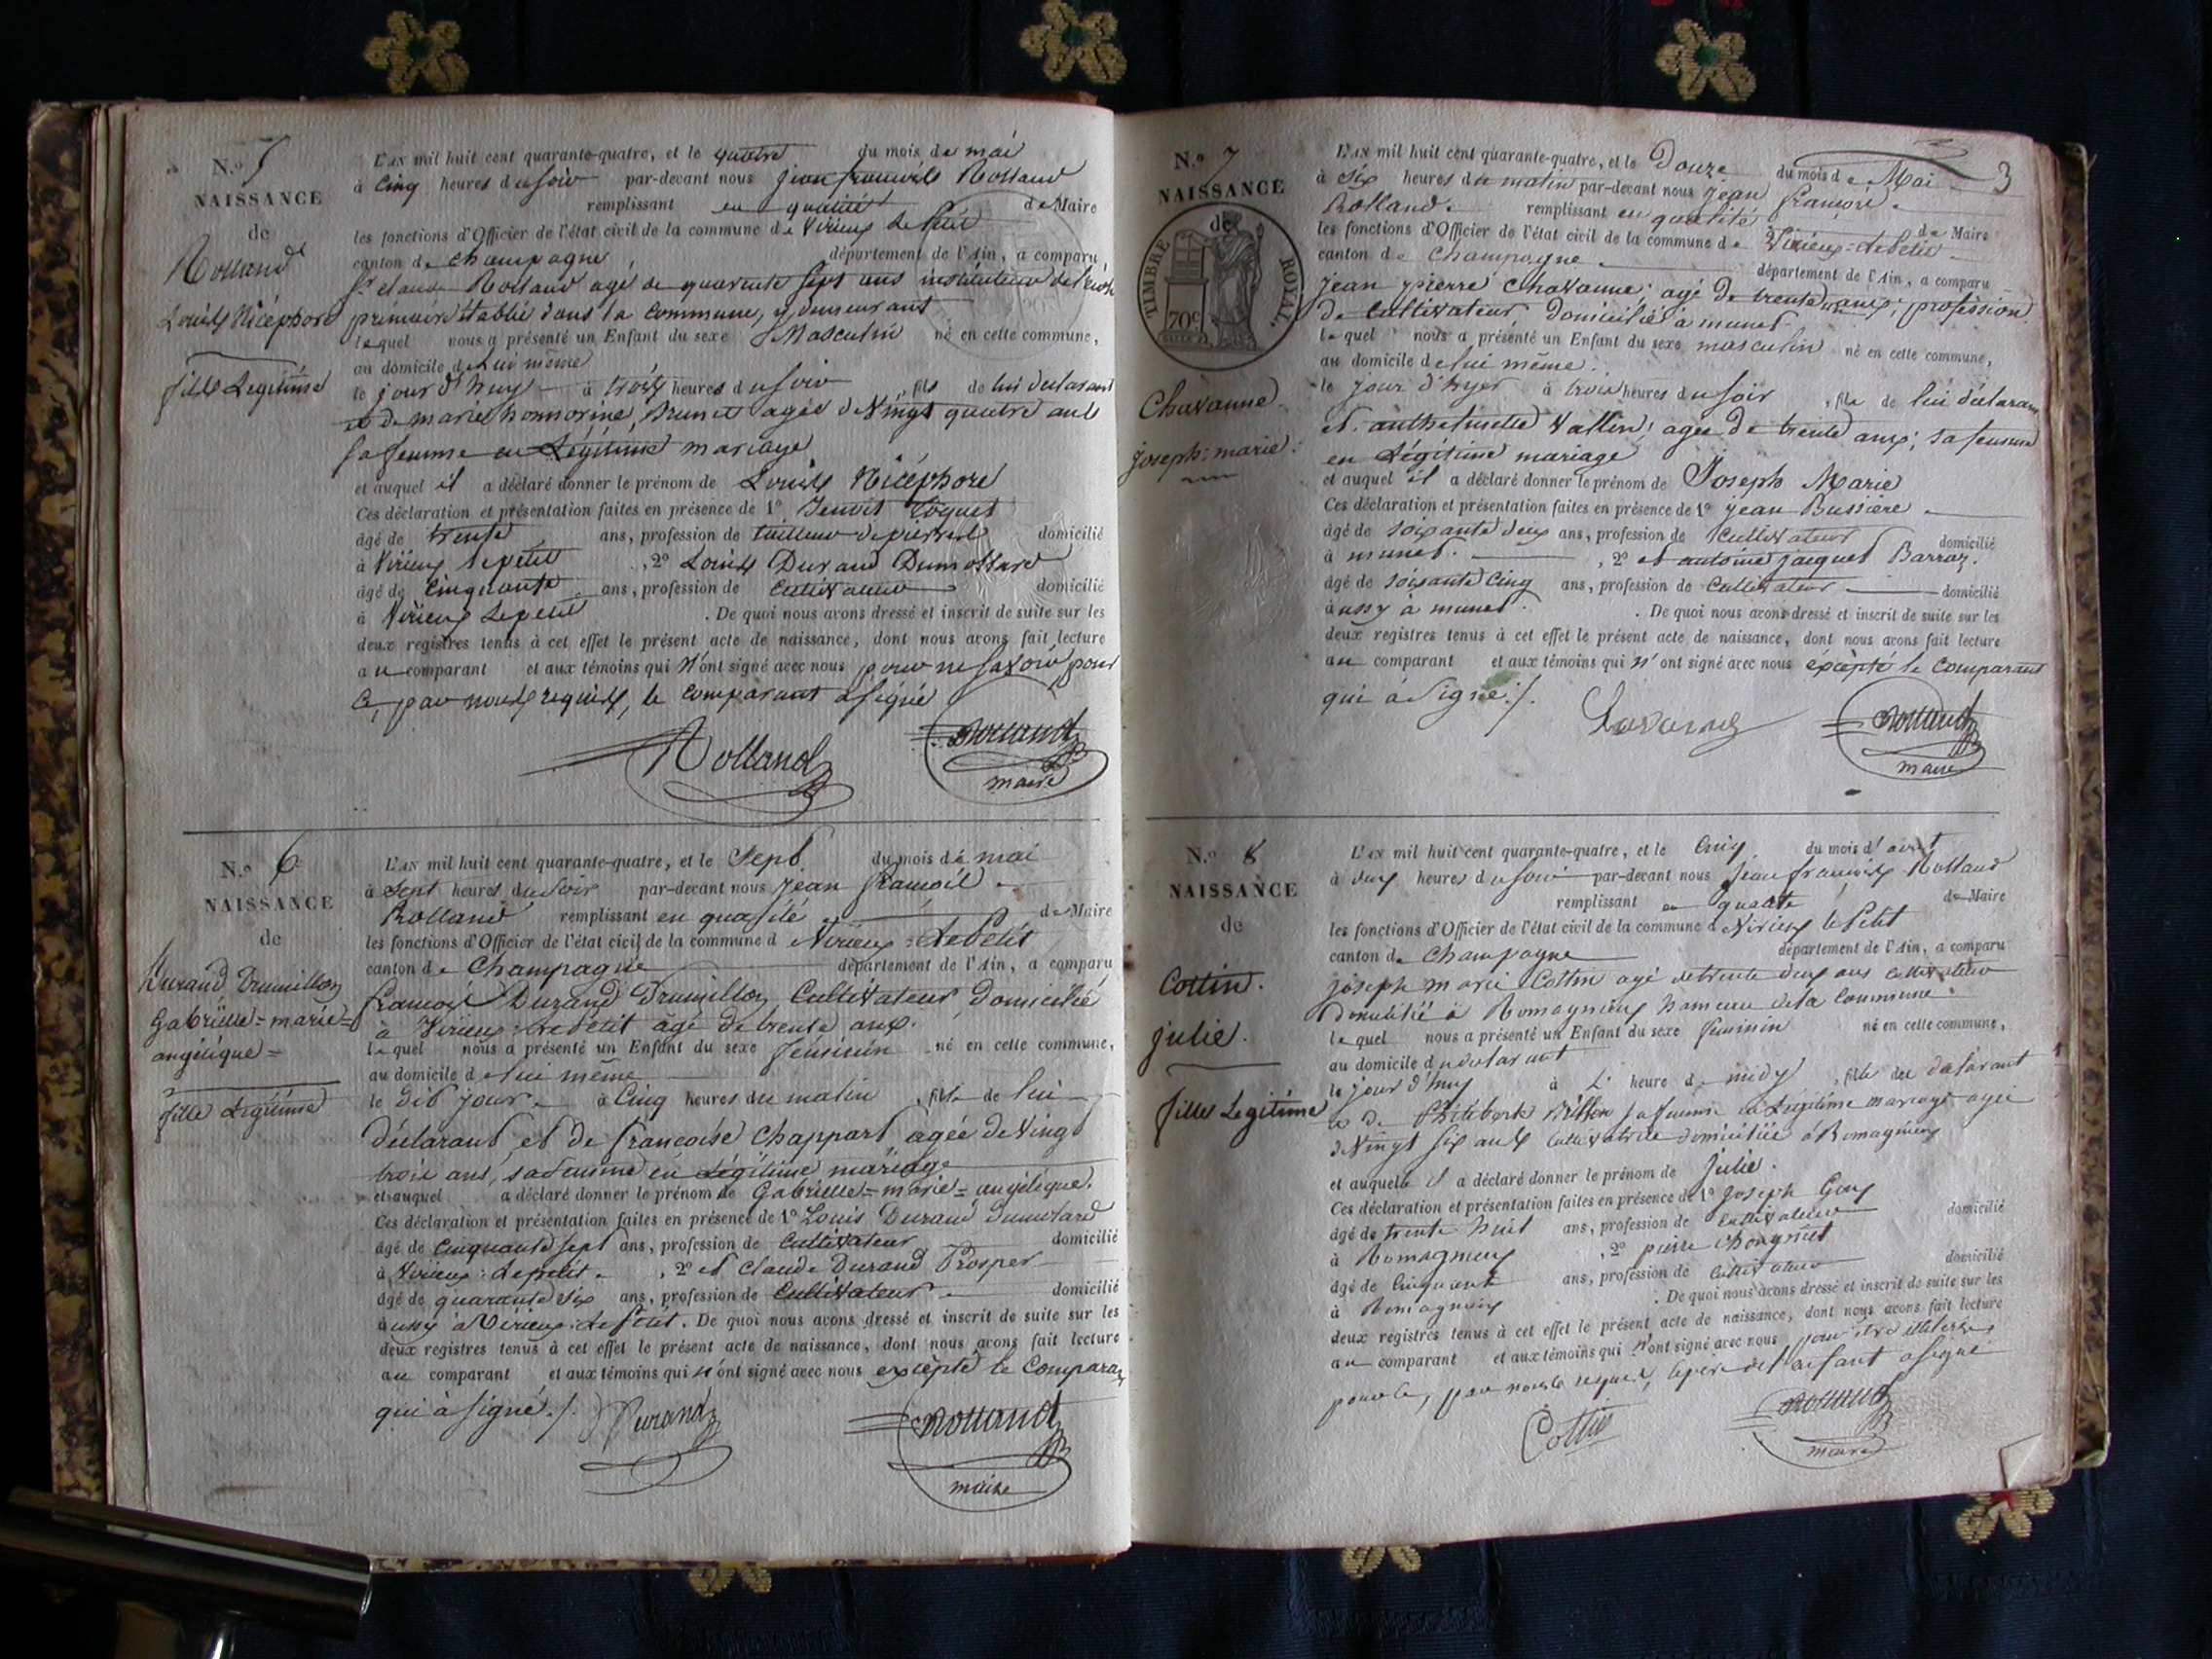 N.o 5
NAISSANCE
de
Rolland
Louis Nicéphore
fils Légitime
L'AN mil huit cent quarante-quatre, et le quatre du mois de mai
à cinq heures du soir par-devant nous jean françois Rolland
remplissant en qualité de Maire
les fonctions d'Officier de l'état civil de la commune de Virieux le petit
canton de champagne, département de l'Ain, a comparu
Sr claude Rolland agé de quarente sept ans instituteur de l'ecole
primaire établie dans la commune, y demeurant
lequel nous a présenté un Enfant du sexe Masculin né en cette commune,
au domicile de lui même
le jour d'huy à trois heures du soir, fils de lui déclarant
et de marie honnorine Brunet agée de Vingt quatre ans
sa femme en Légitime mariage
et auquel il a déclaré donner le prénom de Louis Nicéphore
Ces déclaration et présentation faites en présence de 1o
âgé de trente ans, profession de tailleur de pierres domicilié
à Virieux le petit, 2o Louis Durand Dumollard
âgé de Cinquante ans, profession de Cultivateur domicilié
à Virieux Le petit. De quoi nous avons dressé et inscrit de suite sur les
deux registres tenus à cet effet le présent acte de naissance, dont nous avons fait lecture
au comparant et aux témoins qui n'ont signé avec nous pour ne savoir pour
ce, par nous requis, le comparant a signé
Rolland
Rolland
maire
N.o 6
NAISSANCE
de
Durand Drumillon
Gabrielle=marie=
angélique=
fille Légitime
L'AN mil huit cent quarante-quatre, et le Sept du mois de mai
à Sept heures du Soir par-devant nous jean françois
Rolland remplissant en qualité de Maire
les fonctions d'Officier de l'état civil de la commune d Virieux=Le Petit
canton de Champagne département de l'Ain, a comparu
françois Durand Drumillon Cultivateur Domicilié
à Virieux=Le Petit âgé de trente ans.
lequel nous a présenté un Enfant du sexe féminin né en cette commune,
au domicile de lui même
le dit jour à Cinq heures du matin, fille de lui
Déclarant et de françoise Chappart agée de Vingt
trois ans, sa femme en Légitime mariage
et auquel a déclaré donner le prénom de Gabrielle=marie=angélique.
Ces déclaration et présentation faites en présence de 1o Louis Durand dumolard
âgé de Cinquante sept ans, profession de Cultivateur domicilié
à Virieux=Le petit, 2o et Claude Durand Prosper
âgé de quarante six ans, profession de Cultivateur domicilié
aussy à Virieux=Le Petit. De quoi nous avons dressé et inscrit de suite sur les
deux registres tenus à cet effet le présent acte de naissance, dont nous avons fait lecture
au comparant et aux témoins qui n'ont signé avec nous excèpté le Comparant
qui à signé./.
Durand
Rolland
maire
3
N.o 7
NAISSANCE
de
TIMBRE ROYAL.
70c
Chavanne
joseph=marie
L'AN mil huit cent quarante-quatre, et le Douze du mois de Mai
à Six heures du matin par-devant nous jean françois
Rolland. remplissant en qualité de Maire
les fonctions d'Officier de l'état civil de la commune de Virieux=Le Petit
canton de Champagne département de l'Ain, a comparu
jean pierre Chavanne; agé de trente ans; profession
de Cultivateur Domicilié à munet
lequel nous a présenté un Enfant du sexe masculin né en cette commune,
au domicile de lui même
le jour d'hyer à trois heures du soir, fils de lui déclarant
et Vallin; agée de trente ans; sa femme
en Légitime mariage
et auquel il a déclaré donner le prénom de Joseph Marie
Ces déclaration et présentation faites en présence de 1o jean Bussière
âgé de soixante deux ans, profession de Cultivateur domicilié
à munet. , 2o et antoine jacquet Barraz.
âgé de soixante Cinq ans, profession de Cultivateur domicilié
aussy à munet. De quoi nous avons dressé et inscrit de suite sur les
deux registres tenus à cet effet le présent acte de naissance, dont nous avons fait lecture
au comparant et aux témoins qui n'ont signé avec nous éxcèpté le Comparant
qui à Signé./.
Rolland
maire
N.o 8
NAISSANCE
de
Cottin.
julie.
fille Légitime
L'AN mil huit cent quarante-quatre, et le Cinq du mois d'
à deux heures du soir par-devant nous Jean françois Rolland
remplissant en qualité de Maire
les fonctions d'Officier de l'état civil de la commune de Virieux le Petit
canton de Champagne département de l'Ain, a comparu
joseph marie Cottin agé de trente deux ans cultivateur
Domicilié à Romagnieux hameau de la Commune
lequel nous a présenté un Enfant du sexe féminin né en cette commune,
au domicile du déclarant
le jour d'huy à L' heure de midy, fille du déclarant
et de sa femme en Légitime mariage agée
de Vingt six ans Cultivatrice domiciliée à Romagnieux
et auquelle il a déclaré donner le prénom de julie.
Ces déclaration et présentation faites en présence de 1o Joseph
âgé de trente huit ans, profession de Cultivateur domicilié
à Romagnieux, 2o pierre
âgé de Cinquante ans, profession de Cultivateur domicilié
à Romagnieux. De quoi nous avons dressé et inscrit de suite sur les
deux registres tenus à cet effet le présent acte de naissance, dont nous avons fait lecture
au comparant et aux témoins qui n'ont signé avec nous pour être illiterés
pour ce, par nous requis, le père de l'enfant a signé
Cottin
Rolland
maire